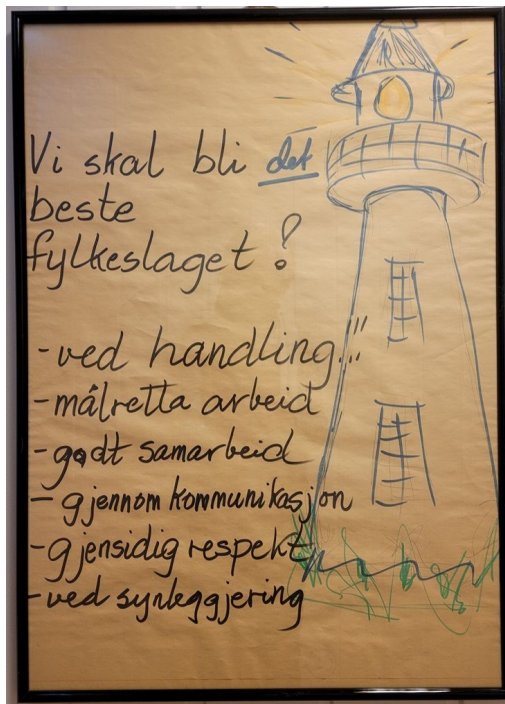 Vi skal bli det
beste
fylkeslaget?
-ved handling...!!!
-målretta arbeid
-godt samarbeid
-gjennom kommunikasjon
-gjensidig respekt
-ved synleggjering